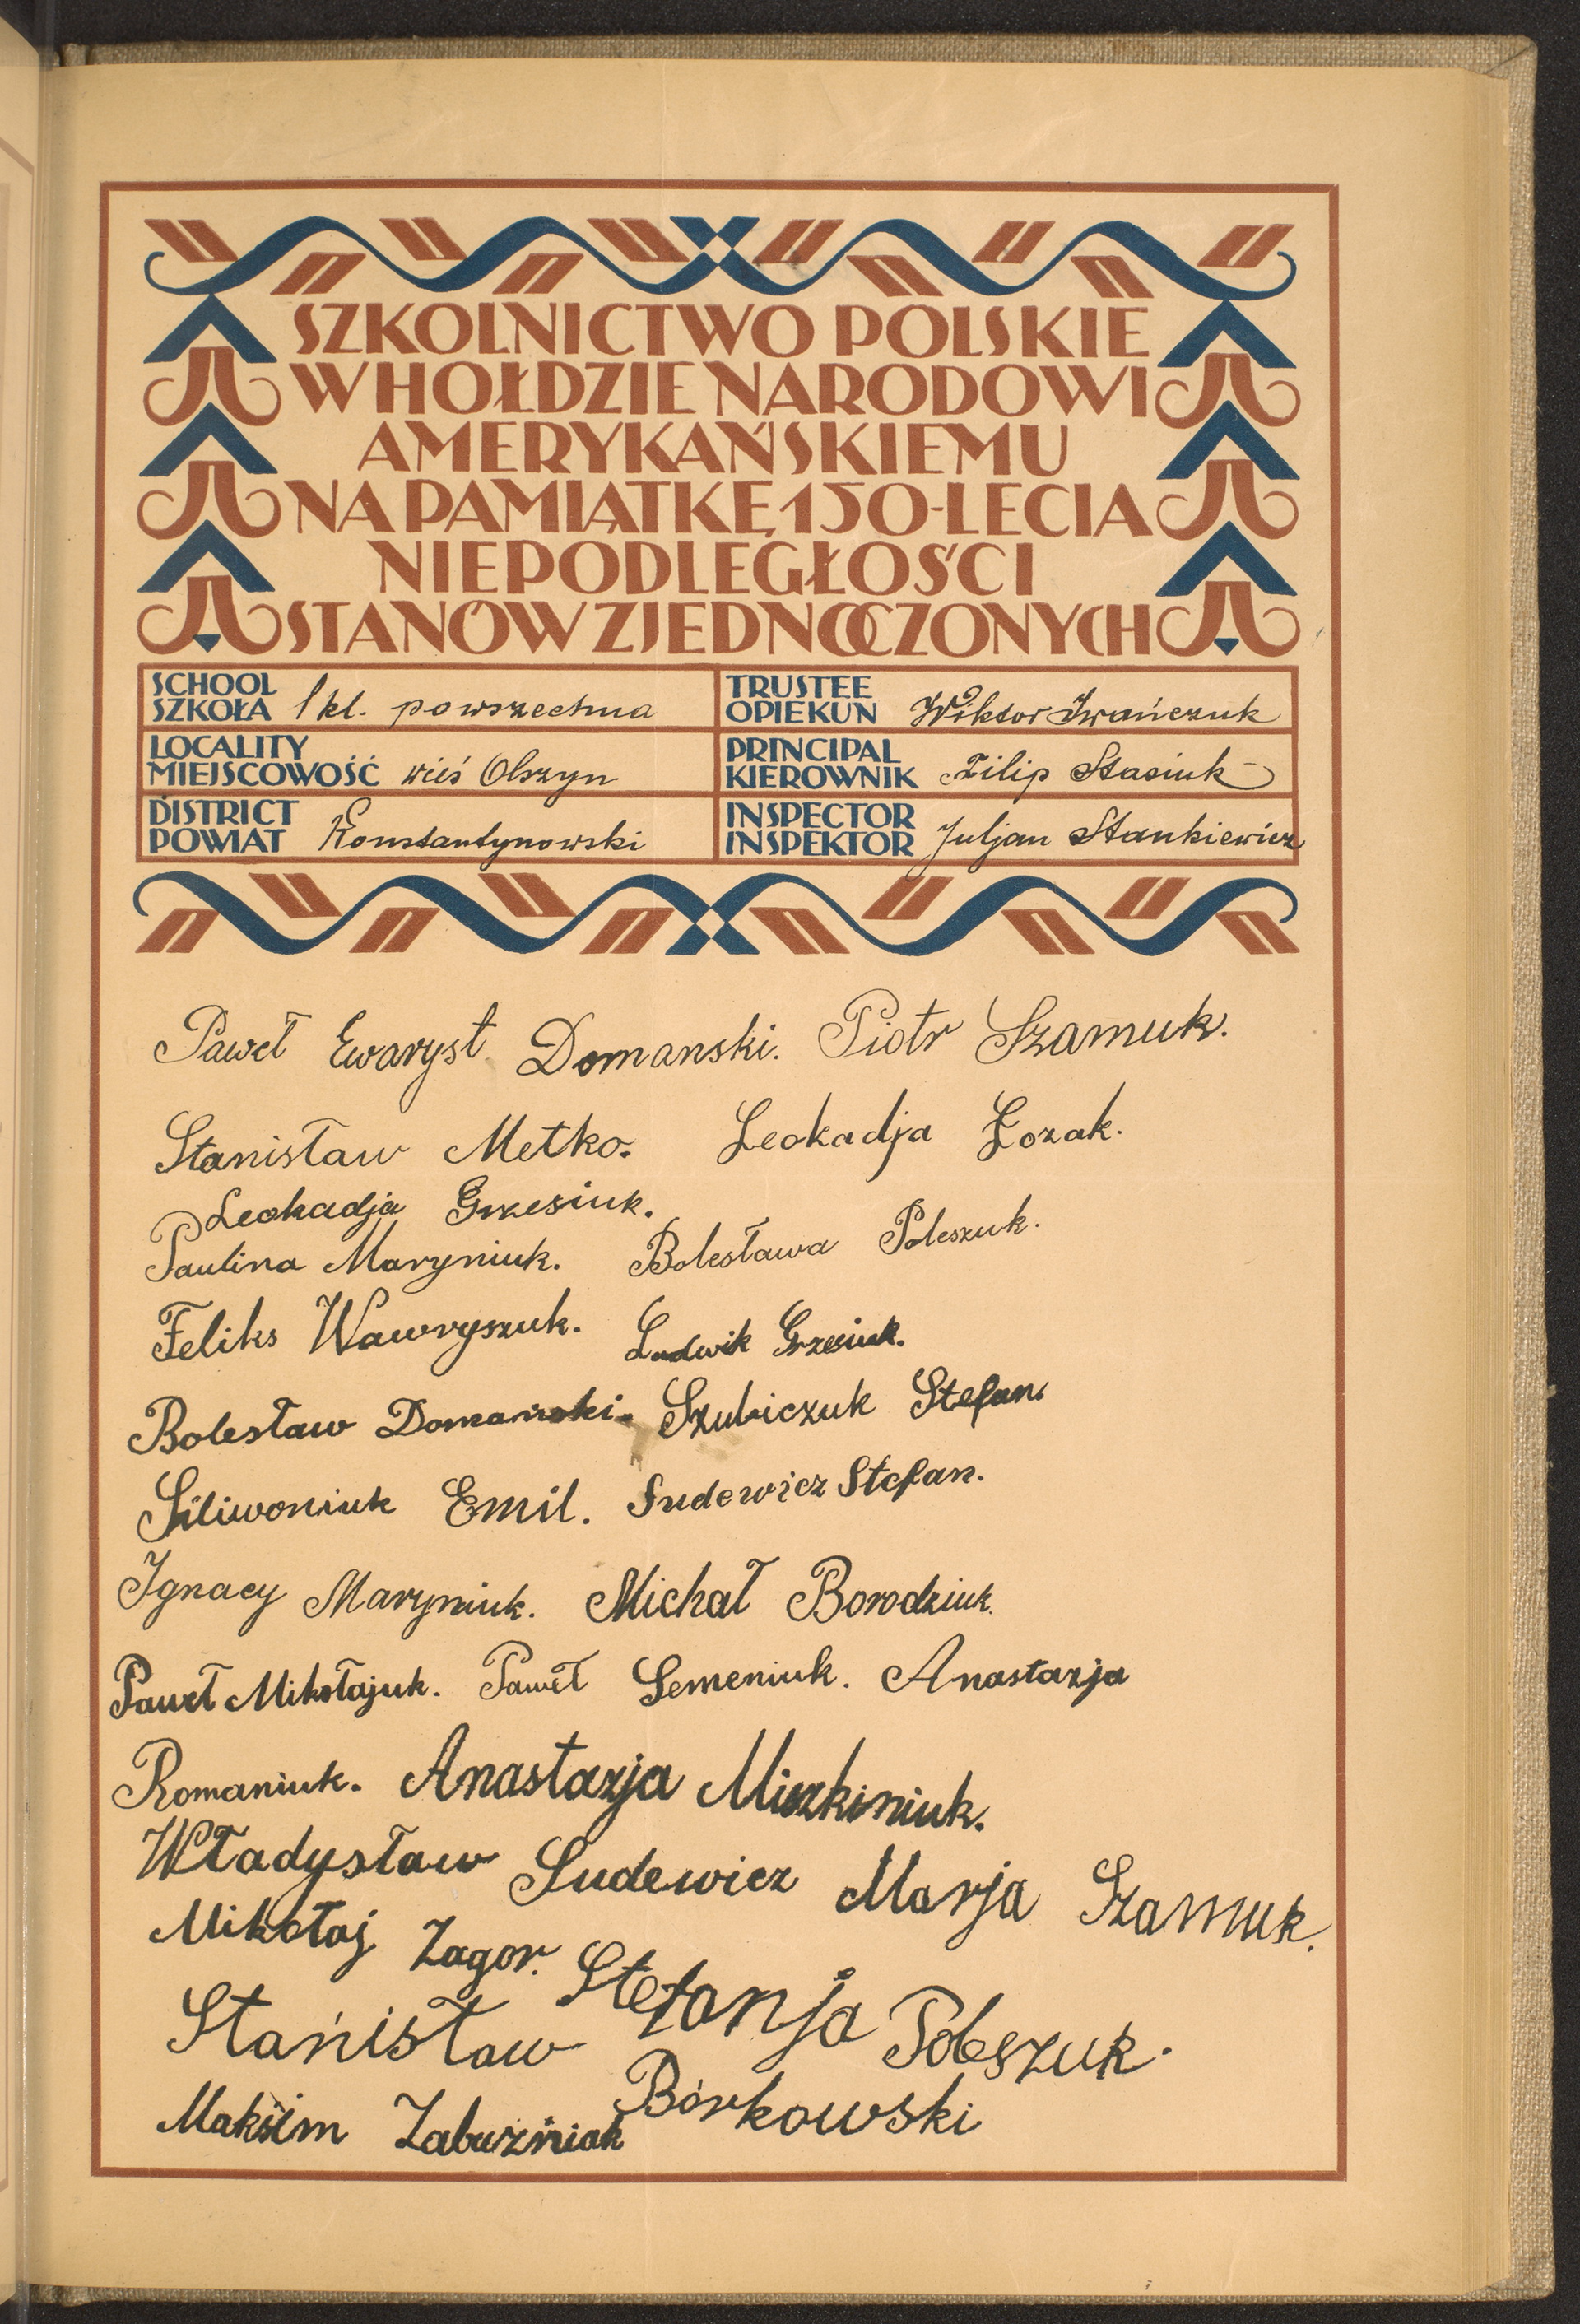 SZKOLNICTWO POLSKIE
W HOŁDZIE NARODOWI
AMERYKAŃSKIEMU
NA PAMIĄTKĘ 150-LECIA
NIEPODLEGŁOŚCI
STANÓW ZJEDNOCZONYCH
SCHOOL
SZKOŁA 1 kl. powszechna
TRUSTEE
OPIEKUN Wiktor Iwańczuk
LOCALITY
MIEJSCOWOŚĆ wieś Olszyn
PRINCIPAL
KIEROWNIK Filip Stasiuk
DISTRICT
POWIAT Konstantynowski
INSPECTOR
INSPEKTOR Juljan Stankiewicz
Paweł Ewaryst Domanski. Piotr Szamuk.
Stanisław Metko. Leokadja Łozak.
Leokadja Grzesiuk.
Paulina Maryniuk. Bolesława Poleszuk.
Feliks Wawryszuk. Ludwik Grzesiuk.
Bolesław Domański. Szubiczuk Stefan.
Siliwoniuk Emil. Sudewicz Stefan.
Ignacy Maryniuk. Michał Borodziuk.
Paweł Mikołajuk. Paweł Semeniuk. Anastazja
Romaniuk. Anastazja Miszkiniuk.
Władysław Sudewicz Marja Szamuk.
Mikołaj Zagor. Stefanja Poleszuk.
Stanisław Borkowski
Maksim Zabuźniak